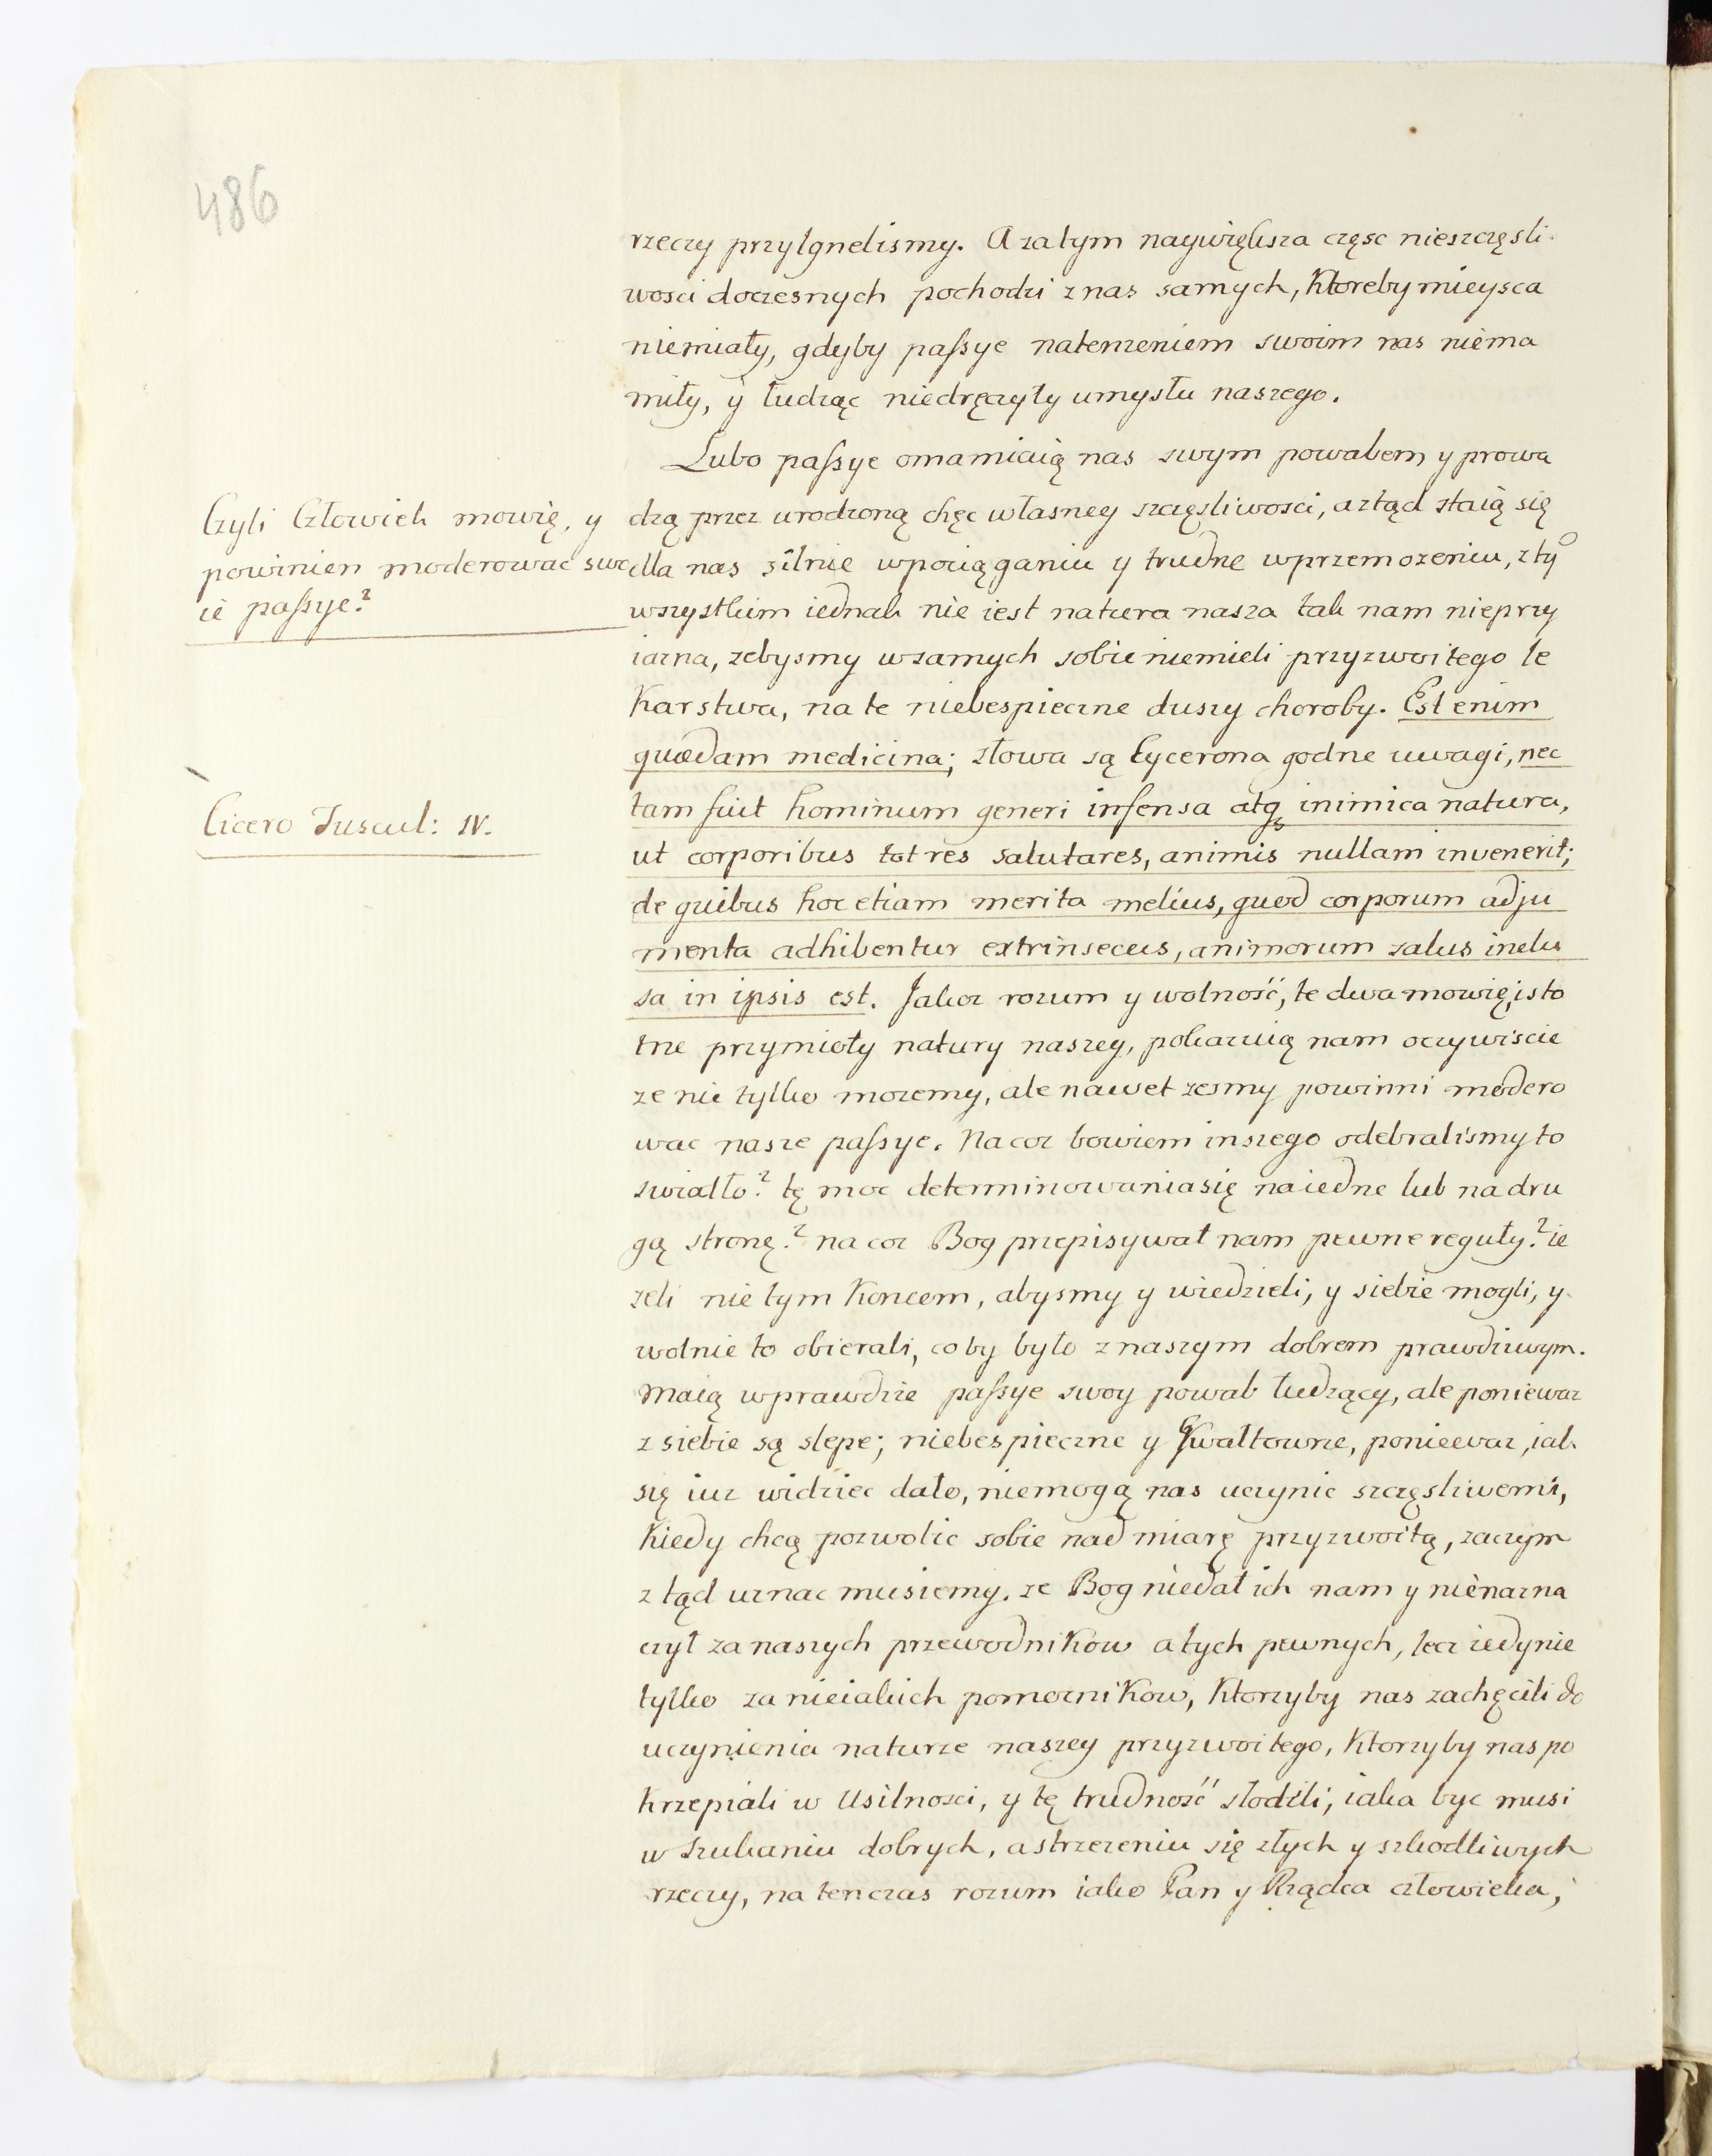 486
rzeczy przylgnelismy. A zatym naywiększa częsc nieszczęsli-
wosci doczesnych pochodzi z nas samych, Ktoreby mieysca
niemiały, gdyby paſsye natenzeniem swoim nas niema
miły, y łudząc niedręczyły umysłu naszego.
Lubo paſsye omamiaią nas swym powabem y prowa
dzą przez urodzoną chęc własney szczęsliwosci, a ztąd staią się
dla nas silnie wpociąganiu y trudne wprzemozeniu, z ty͠
wszystkim iednak nie iest natura nasza tak nam nieprzy
iazna, zebysmy wsamych sobie niemieli przyzwoitego le
Karstwa, na te niebespieczne duszy choroby. Est enim
quædam medicina; słowa są Cycerona godne uwagi, nec
tam fuit hominum generi infensa atq3 inimica natura,
ut corporibus tot res salutares, animis nullam invenerit;
de quibus hoc etiam merita melius, quod corporum adju
menta adhibentur extrinsecus, animorum salus inclu
sa in ipsis est. Jakoz rozum y wolność, te dwa mowię, isto
tne przymioty natury naszey, pokazuią nam oczywiscie
ze nie tylko mozemy, ale nawet zesmy powinni modero
wac nasze paſsye. Na coz bowiem inszego odebralismy to
swiatło? tę moc determinowania się na iedne lub na dru
gą stronę? na coz Bog przepisywał nam pewne reguły? ie
zeli nie tym Koncem, abysmy y wiedzieli, y siebie mogli, y
wolnie to obierali, coby było z naszym dobrem prawdziwym.
Maią wprawdzie paſsye swoy powab łudzący, ale poniewaz
z siebie są slepe; niebespieczne y Gwałtowne, poniewaz, iak
się iuz widziec dało, niemogą nas uczynic szczęsliwemi,
Kiedy chcą pozwolic sobie nad miarę przyzwoitą, zaczym
z tąd uznac musiemy. ze Bog niedał ich nam y nienazna
czył za naszych przewodnikow a tych pewnych, lecz iedynie
tylko za nieiakich pomocnikow, Ktorzyby nas zachęcili do
uczynienia naturze naszey przyzwoitego, Ktorzyby nas po
krzepiali w Usilnosci, y tę trudność słodzili, iaka byc musi
w szukaniu dobrych, a strzezeniu się złych y szkodliwych
rzeczy, na tenczas rozum iako Pan y Rządca człowieka,
Czyli Człowiek mowię, y
powinien moderowac swo
ie paſsye?
Cicero Tuscul: IV.